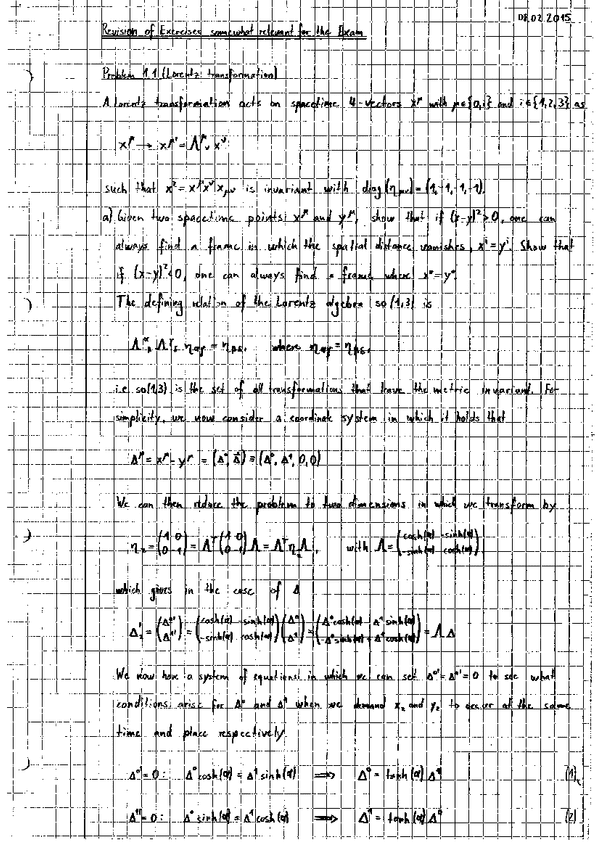 08.02.2015
Revision of Exercises somewhat relevant for the Exam
Problem 1.1 (Lorentz transformation)
A Lorentz transformation acts on spacetime 4-vectors x^μ with μ∈{0,i} and i∈{1,2,3} as
x^μ → x^μ' = Λ^μ_ν x^ν
such that x² = x^μ x^ν η_μν is invariant with diag(η_μν) = (1,-1,-1,-1).
a) Given two spacetime points x^μ and y^μ, show that if (x-y)² > 0, one can
always find a frame in which the spatial distance vanishes, x^i = y^i. Show that
if (x-y)² < 0, one can always find a frame where x^0 = y^0
The defining relation of the Lorentz algebra so(1,3) is
where
i.e. so(1,3) is the set of all transformations that leave the metric invariant. For
simplicity, we now consider a coordinate system in which it holds that
Δ^μ = x^μ - y^μ = (Δ^0, Δ⃗) = (Δ^0, Δ^1, 0, 0)
We can then reduce the problem to two dimensions in which we transform by
η_2 = (1 0; 0 -1) = Λ^T (1 0; 0 -1) Λ = Λ^T η_2 Λ, with Λ = (cosh(α) -sinh(α); -sinh(α) cosh(α))
which gives in the case of Δ
Δ_2' = (Δ^0'; Δ^1') = (cosh(α) -sinh(α); -sinh(α) cosh(α)) (Δ^0; Δ^1) = (Δ^0 cosh(α) - Δ^1 sinh(α); -Δ^0 sinh(α) + Δ^1 cosh(α)) = Λ Δ
We now have a system of equations in which we can set Δ^0' = Δ^1' = 0 to see what
conditions arise for Δ^0 and Δ^1 when we demand x_2 and y_2 to occur at the same
time and place respectively.
Δ^0' = 0 : Δ^0 cosh(α) = Δ^1 sinh(α) ⟹ Δ^0 = tanh(α) Δ^1 (1)
Δ^1' = 0 : Δ^0 sinh(α) = Δ^1 cosh(α) ⟹ Δ^1 = tanh(α) Δ^0 (2)